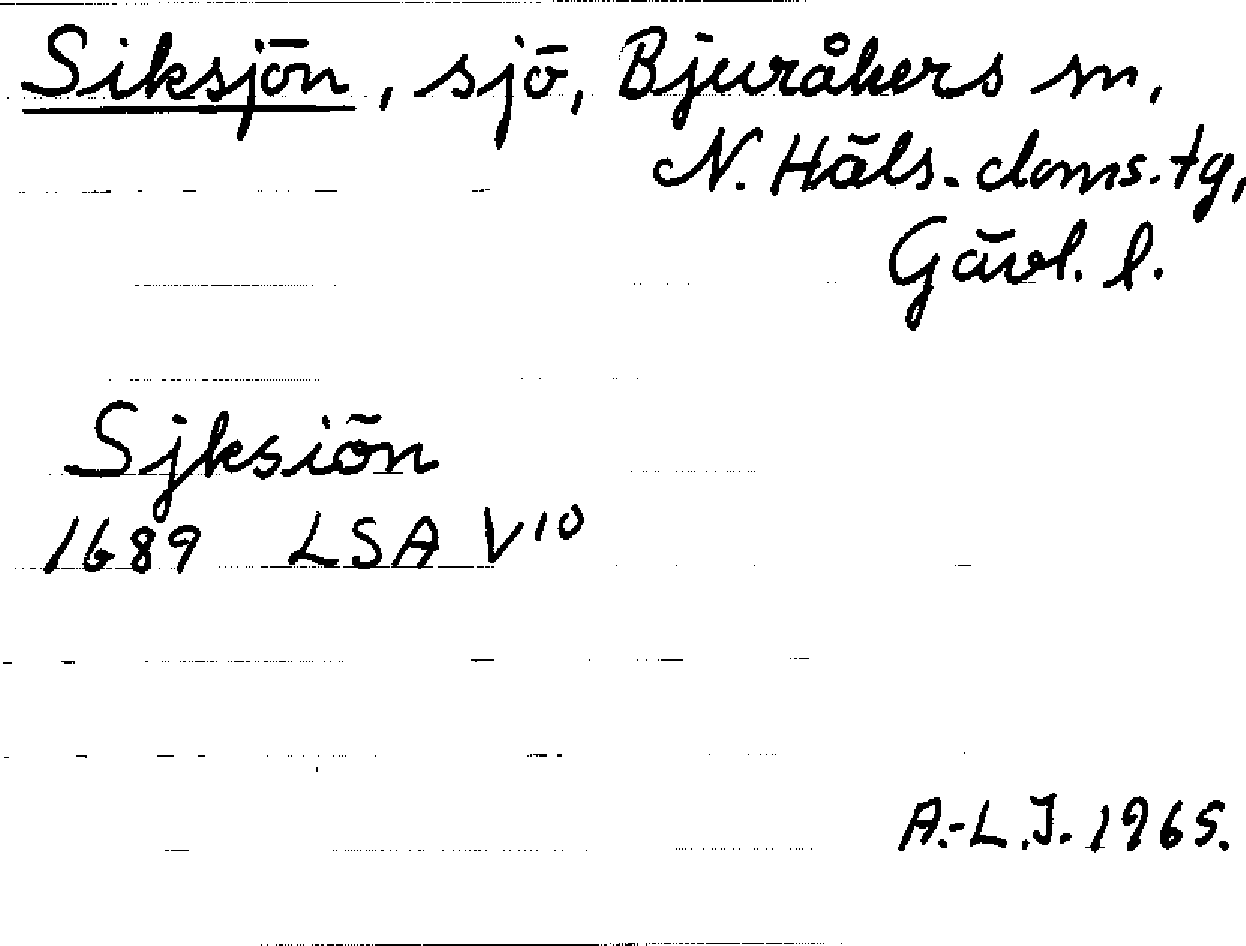 Siksjön, sjö, Bjuråkers sn,
N. Häls. doms. tg,
Gävl. l.
Sjksiön
1689 LSA V10
A.-L.J. 1965.